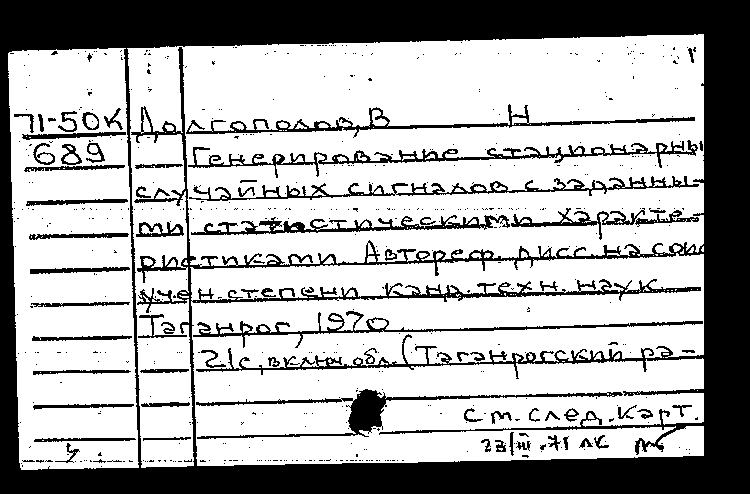 71-50К Долгополов, В Н
689 Генерирование стационарны
случайных сигналов с заданны-
ми статистическими характе-
ристиками. Автореф. дисс. на соис
учен. степени канд. техн. наук
Таганрог, 1970.
21с, включ. обл. (Таганрогский ра-
см. след. карт.
23/III.71 ЛК